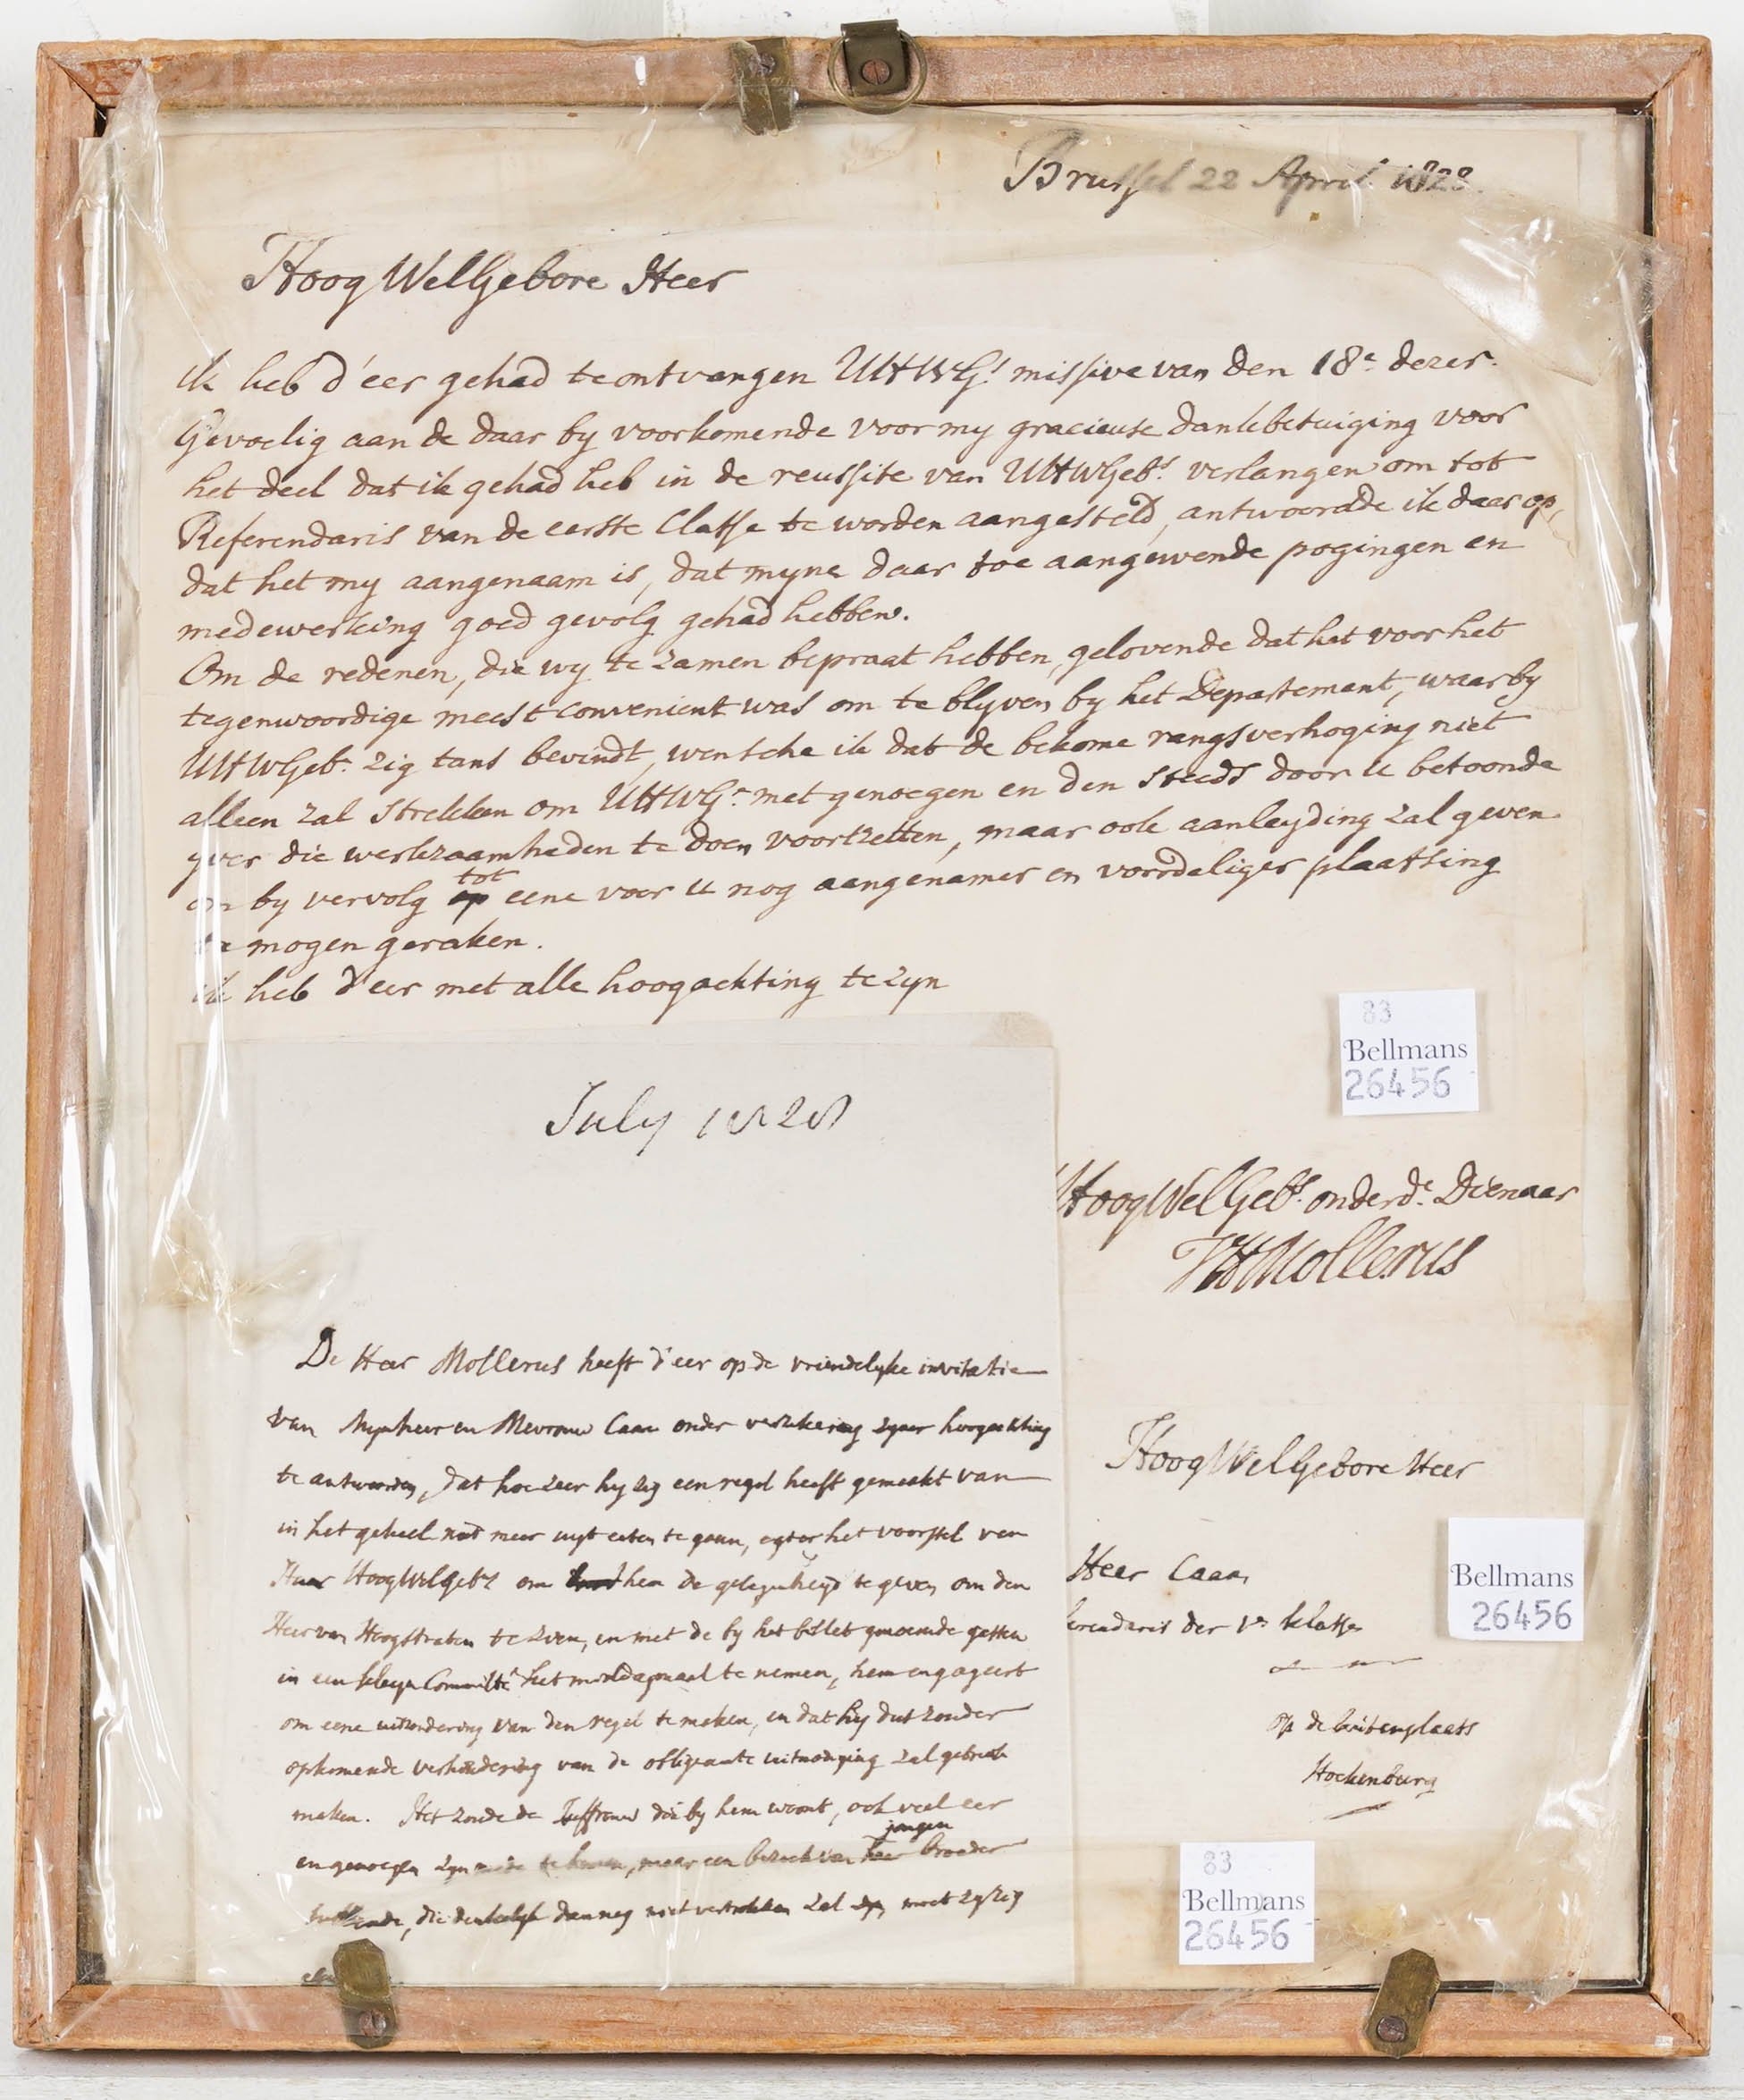 Brussel 22 April 1828.
HoogWelGebore Heer
ik heb d'eer gehad te ontvangen UHWGs missive van den 18e dezer.
Gevoelig aan de daar by voorkomende voor my gracieuse dankbetuiging voor
het deel dat ik gehad heb in de reussite van UHWGebs. verlangen om tot
Referendaris van de eerste Classe te worden aangesteld, antwoordde ik daar op,
dat het my aangenaam is, dat myne daar toe aangewende pogingen en
medewerking goed gevolg gehad hebben.
Om de redenen, die wy te zamen bepraat hebben, gelovende dat het voor het
tegenwoordige meest convenient was om te blyven by het Departement, waar by
UHWGeb. zig tans bevindt, wensche ik dat de bekome rangsverhoging niet
alleen zal strekken om UHWGr met genoegen en den steeds door U betoonde
yver die werkzaamheden te doen voortzetten, maar ook aanleyding zal geven
om by vervolg tot eene voor U nog aangenamer en voordeliger plaatsing
te mogen geraken.
ik heb d'eer met alle hoogachting te zyn
83
Bellmans
26456
July 1828
HoogWelGebs. onderde. Dienaar
JHMollerus
De Heer Mollerus heeft d'eer op de vriendelyke invitatie
van Mynheer en Mevrouw Caan onder verzekering zyner hoogachting
te antwoorden, dat hoe zeer hy zig een regel heeft gemaakt van
in het geheel niet meer uyt eeten te gaan, egter het voorstel van
Haar HoogWelGeb om hem de gelegenheyd te geven om den
Heer van Hoogstraten te zien, en met de by het billet genoemde gasten
in een kleyn Committé het middagmaal te nemen, hem engageert
om eene uitzondering van den regel te maken, en dat hy dus zonder
opkomende verhindering van de obligeante uitnodiging zal gebruik
maken. Het zoude de Juffrouw die by hem woont, ook veel eer
en genoegen zyn mede te komen, maar een bezoek van haar jongen broeder
die denkelyk dan nog niet vertrokken zal zyn, moet zy zig
HoogWelGebore Heer
Heer Caan
ferendaris der 1e klasse
op de buitenplaats
Hockenburg
Bellmans
26456
83
Bellmans
26456